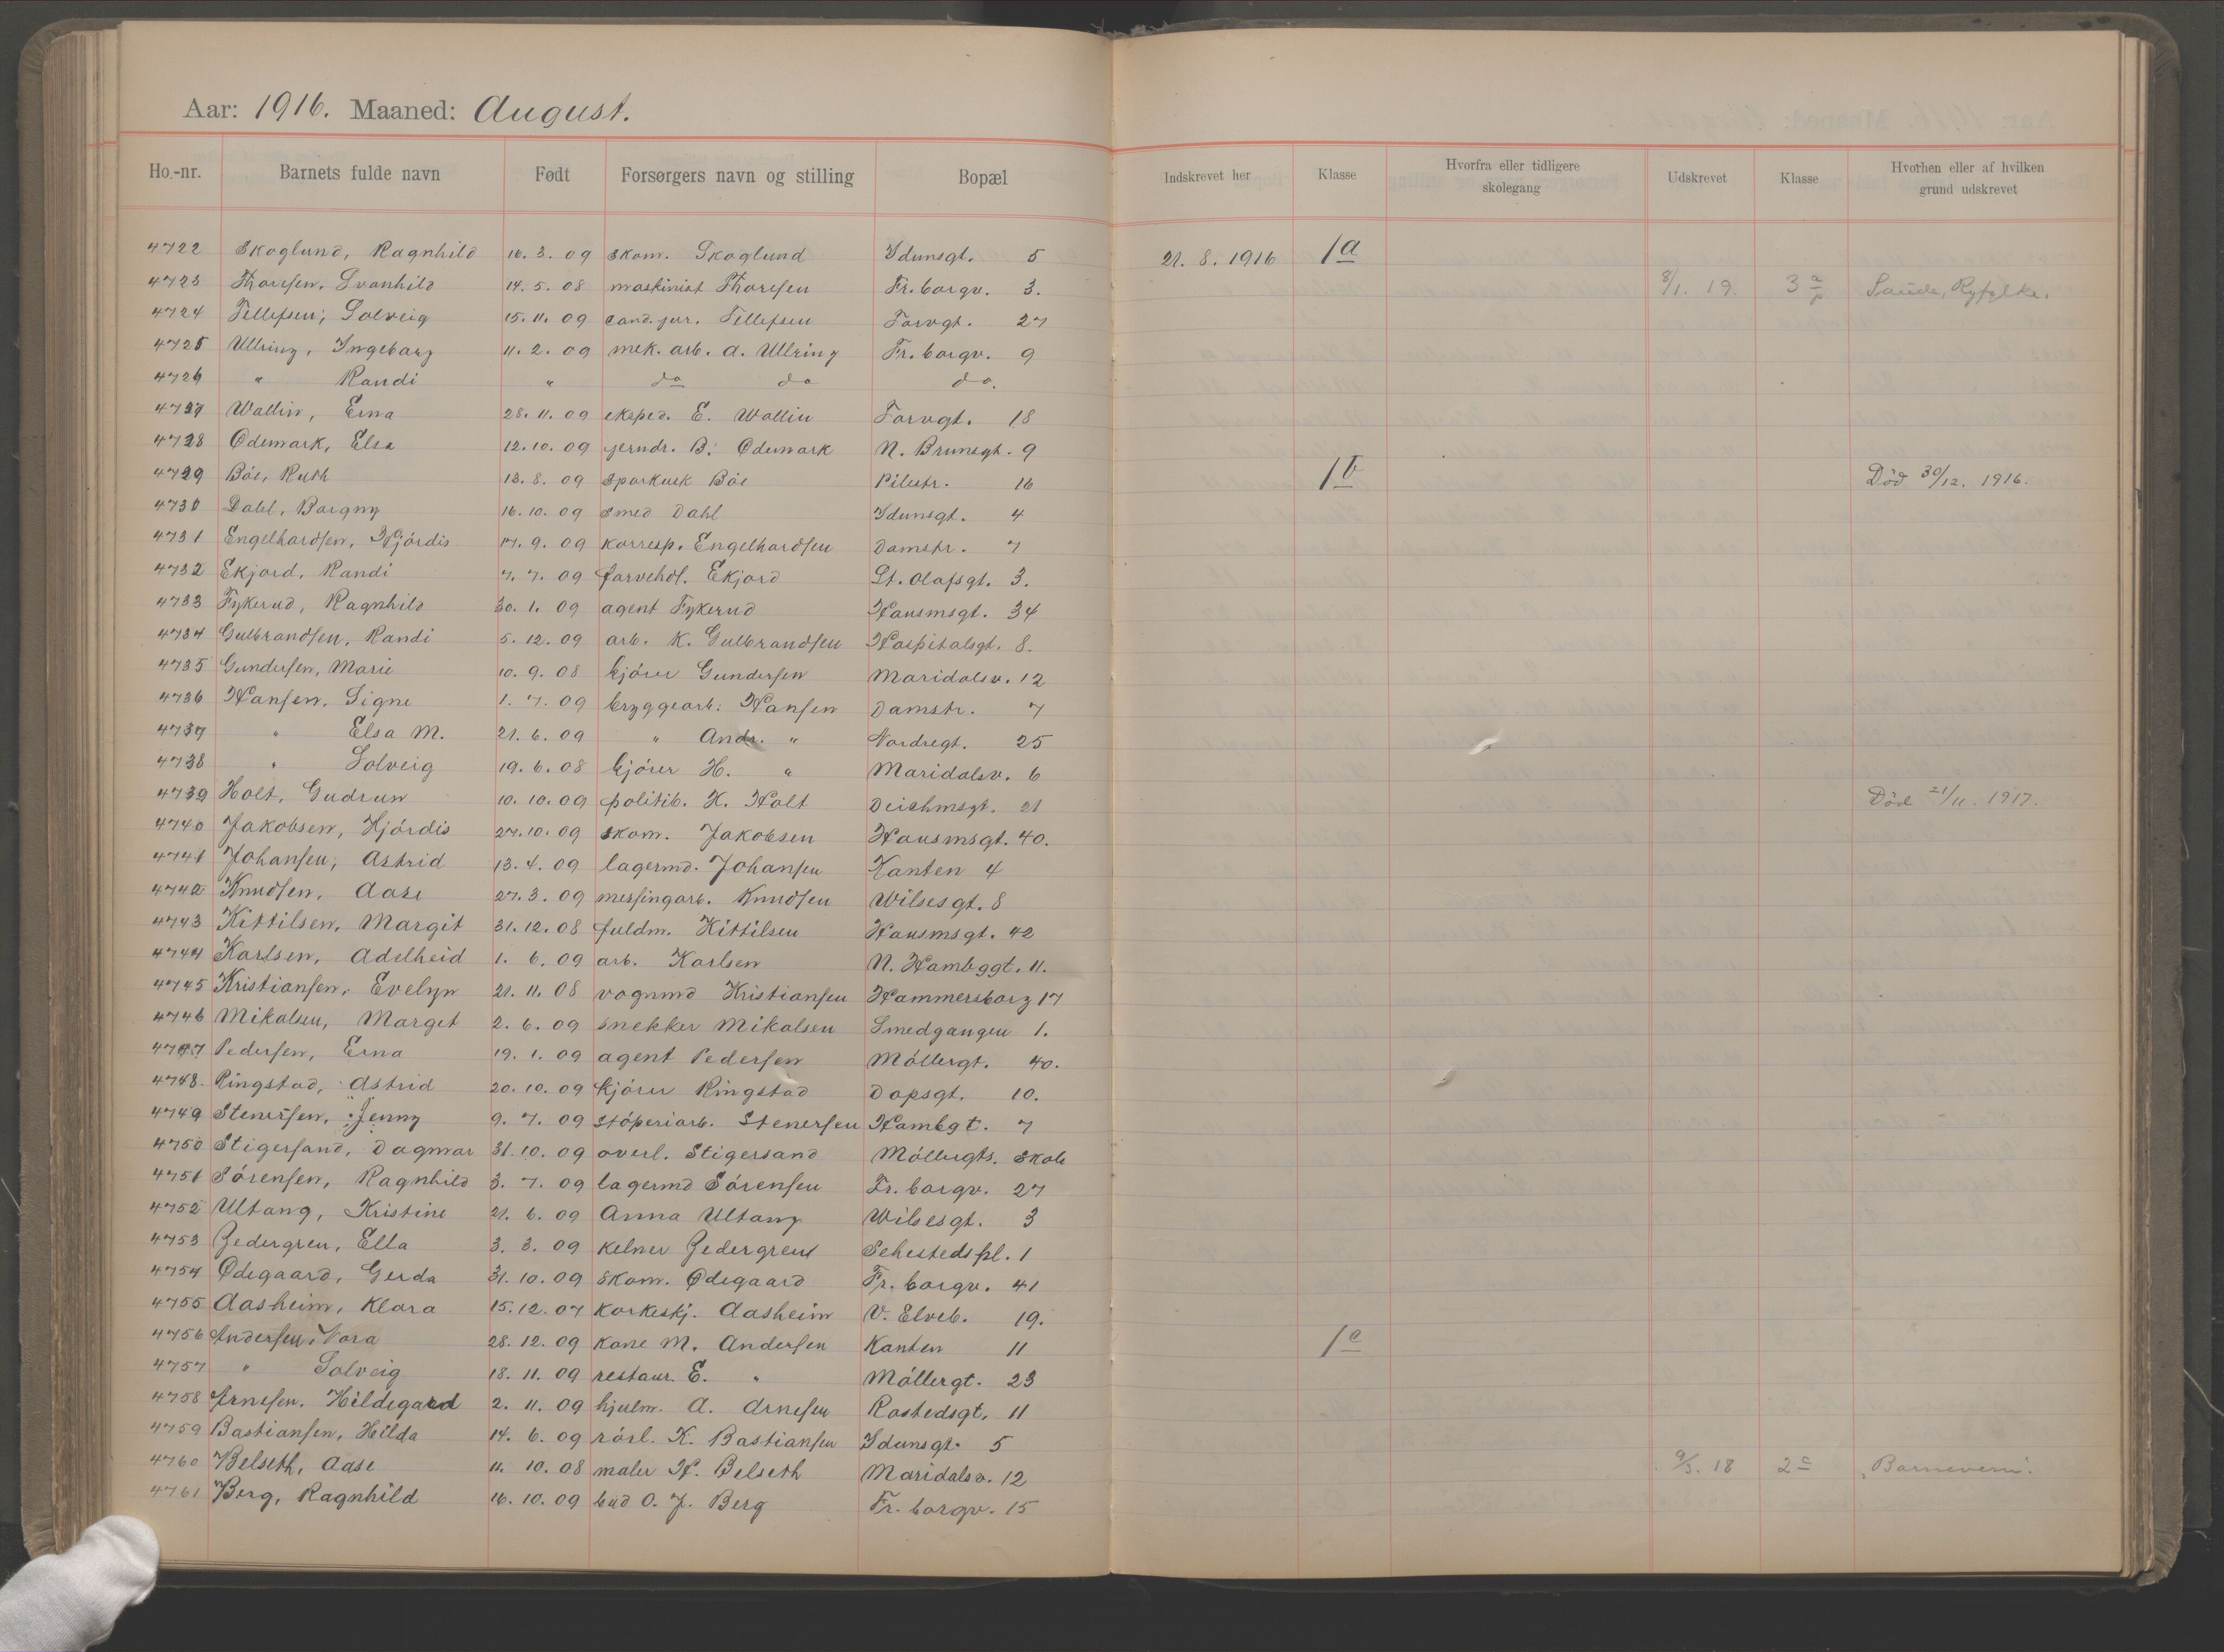 Aar: 1916. Maaned: August.
Ho.-nr. Barnets fulde navn Født Forsørgers navn og stilling Bopæl Indskrevet her Klasse Hvorfra eller tidligere skolegang Udskrevet Klasse Hvorhen eller af hvilken grund udskrevet
4722 Skoglund, Ragnhild 16. 3. 09 skom. Skoglund Idunsgt. 5 21. 8. 1916 1a
4723 Thoresen, Svanhild 14. 5. 08 maskinist Thoresen Fr.borgv. 3. 8/1. 19. 3 a Saude, Ryfylke.
4724 Tellefsen, Solveig 15. 11. 09 cand. jur. Tellefsen Torvgt. 27
4725 Ullring, Ingeborg 11. 2. 09 mek. arb. A. Ullring Fr. borgv. 9
4726 " Randi " do do do.
4727 Wallin, Erna 28. 11. 09 eksped. E. Wallin Torvgt. 18
4728 Ødemark, Elsa 12. 10. 09 jerndr. B. Ødemark N. Brunsgt. 9
4729 Böe, Ruth 13. 8. 09 sporkusk Böe Pilestr. 16 1b Död 30/12. 1916.
4730 Dahl, Borgny 16. 10. 09 smed Dahl Idunsgt. 4
4731 Engelhardsen, Hjördis 17. 9. 09 korresp. Engelhardsen Damstr. 7
4732 Ekjord, Randi 7. 7. 09 farvehdl. Ekjord St. Olafsgt. 3.
4733 Fykerud, Ragnhild 30. 1. 09 agent Fykerud Hausmsgt. 34
4734 Gulbrandsen, Randi 5. 12. 09 arb. K. Gulbrandsen Hospitalsgt. 8.
4735 Gundersen, Marie 10. 9. 08 kjörer Gundersen Maridalsv. 12
4736 Hansen, Signe 1. 7. 09 bryggearb. Hansen Damstr. 7
4737 " Elsa M. 21. 6. 09 " Andr. " Nordregt. 25
4738 " Solveig 19. 6. 08 kjörer H. " Maridalsv. 6
4739 Holt, Gudrun 10. 10. 09 politib. H. Holt Deichmsgt. 21 Död 21/11. 1917.
4740 Jakobsen, Hjördis 27. 10. 09 skom. Jakobsen Hausmsgt. 40.
4741 Johansen, Astrid 13. 4. 09 lagermd. Johansen Kanten 4
4742 Knudsen, Aase 27. 3. 09 messingarb. Knudsen Wilsesgt. 8
4743 Kittilsen, Margit 31. 12. 08 fuldm. Kittilsen Hausmsgt. 42
4744 Karlsen, Adelheid 1. 6. 09 arb. Karlsen N. Hambggt. 11.
4745 Kristiansen, Evelyn 21. 11. 08 vognmd Kristiansen Hammersborg 17
4746 Mikalsen, Marget 2. 6. 09 snekker Mikalsen Smedgangen 1.
4747 Pedersen, Erna 19. 1. 09 agent Pedersen Möllergt. 40.
4748. Ringstad, Astrid 20. 10. 09 kjörer Ringstad Dopsgt. 10.
4749 Stenersen, Jenny 9. 7. 09 stöperiarb. Stenersen Hambgt. 7
4750 Stigersand, Dagmar 31. 10. 09 overl. Stigersand Möllergts. skole
4751 Sörensen, Ragnhild 3. 7. 09 lagermd Sörensen Fr. borgv. 27
4752 Ultang, Kristine 21. 6. 09 Anna Ultang Wilsesgt. 3
4753 Zedergren, Ella 3. 3. 09 kelner Zedergren Sehestedspl. 1
4754 Ødegaard, Gerda 31. 10. 09 skom. Ødegaard Fr. borgv. 41
4755 Aasheim, Klara 15. 12. 07 korkeskj. Aasheim V. Elveb. 19.
4756 Andersen, Nora 28. 12. 09 kone M. Andersen Kanten 11 1c
4757 " Solveig 18. 11. 09 restaur. E. " Möllergt. 23
4758 Arnesen, Hildegard 2. 11. 09 hjulm. A. Arnesen Rostedsgt. 11
4759 Bastiansen, Hilda 14. 6. 09 rörl. K. Bastiansen Idunsgt. 5
4760 Belseth, Aase 11. 10. 08 maler H. Belseth Maridalsv. 12 9/3. 18 2 c "Barnevern".
4761 Berg, Ragnhild 16. 10. 09 bud O. J. Berg Fr. borgv. 15